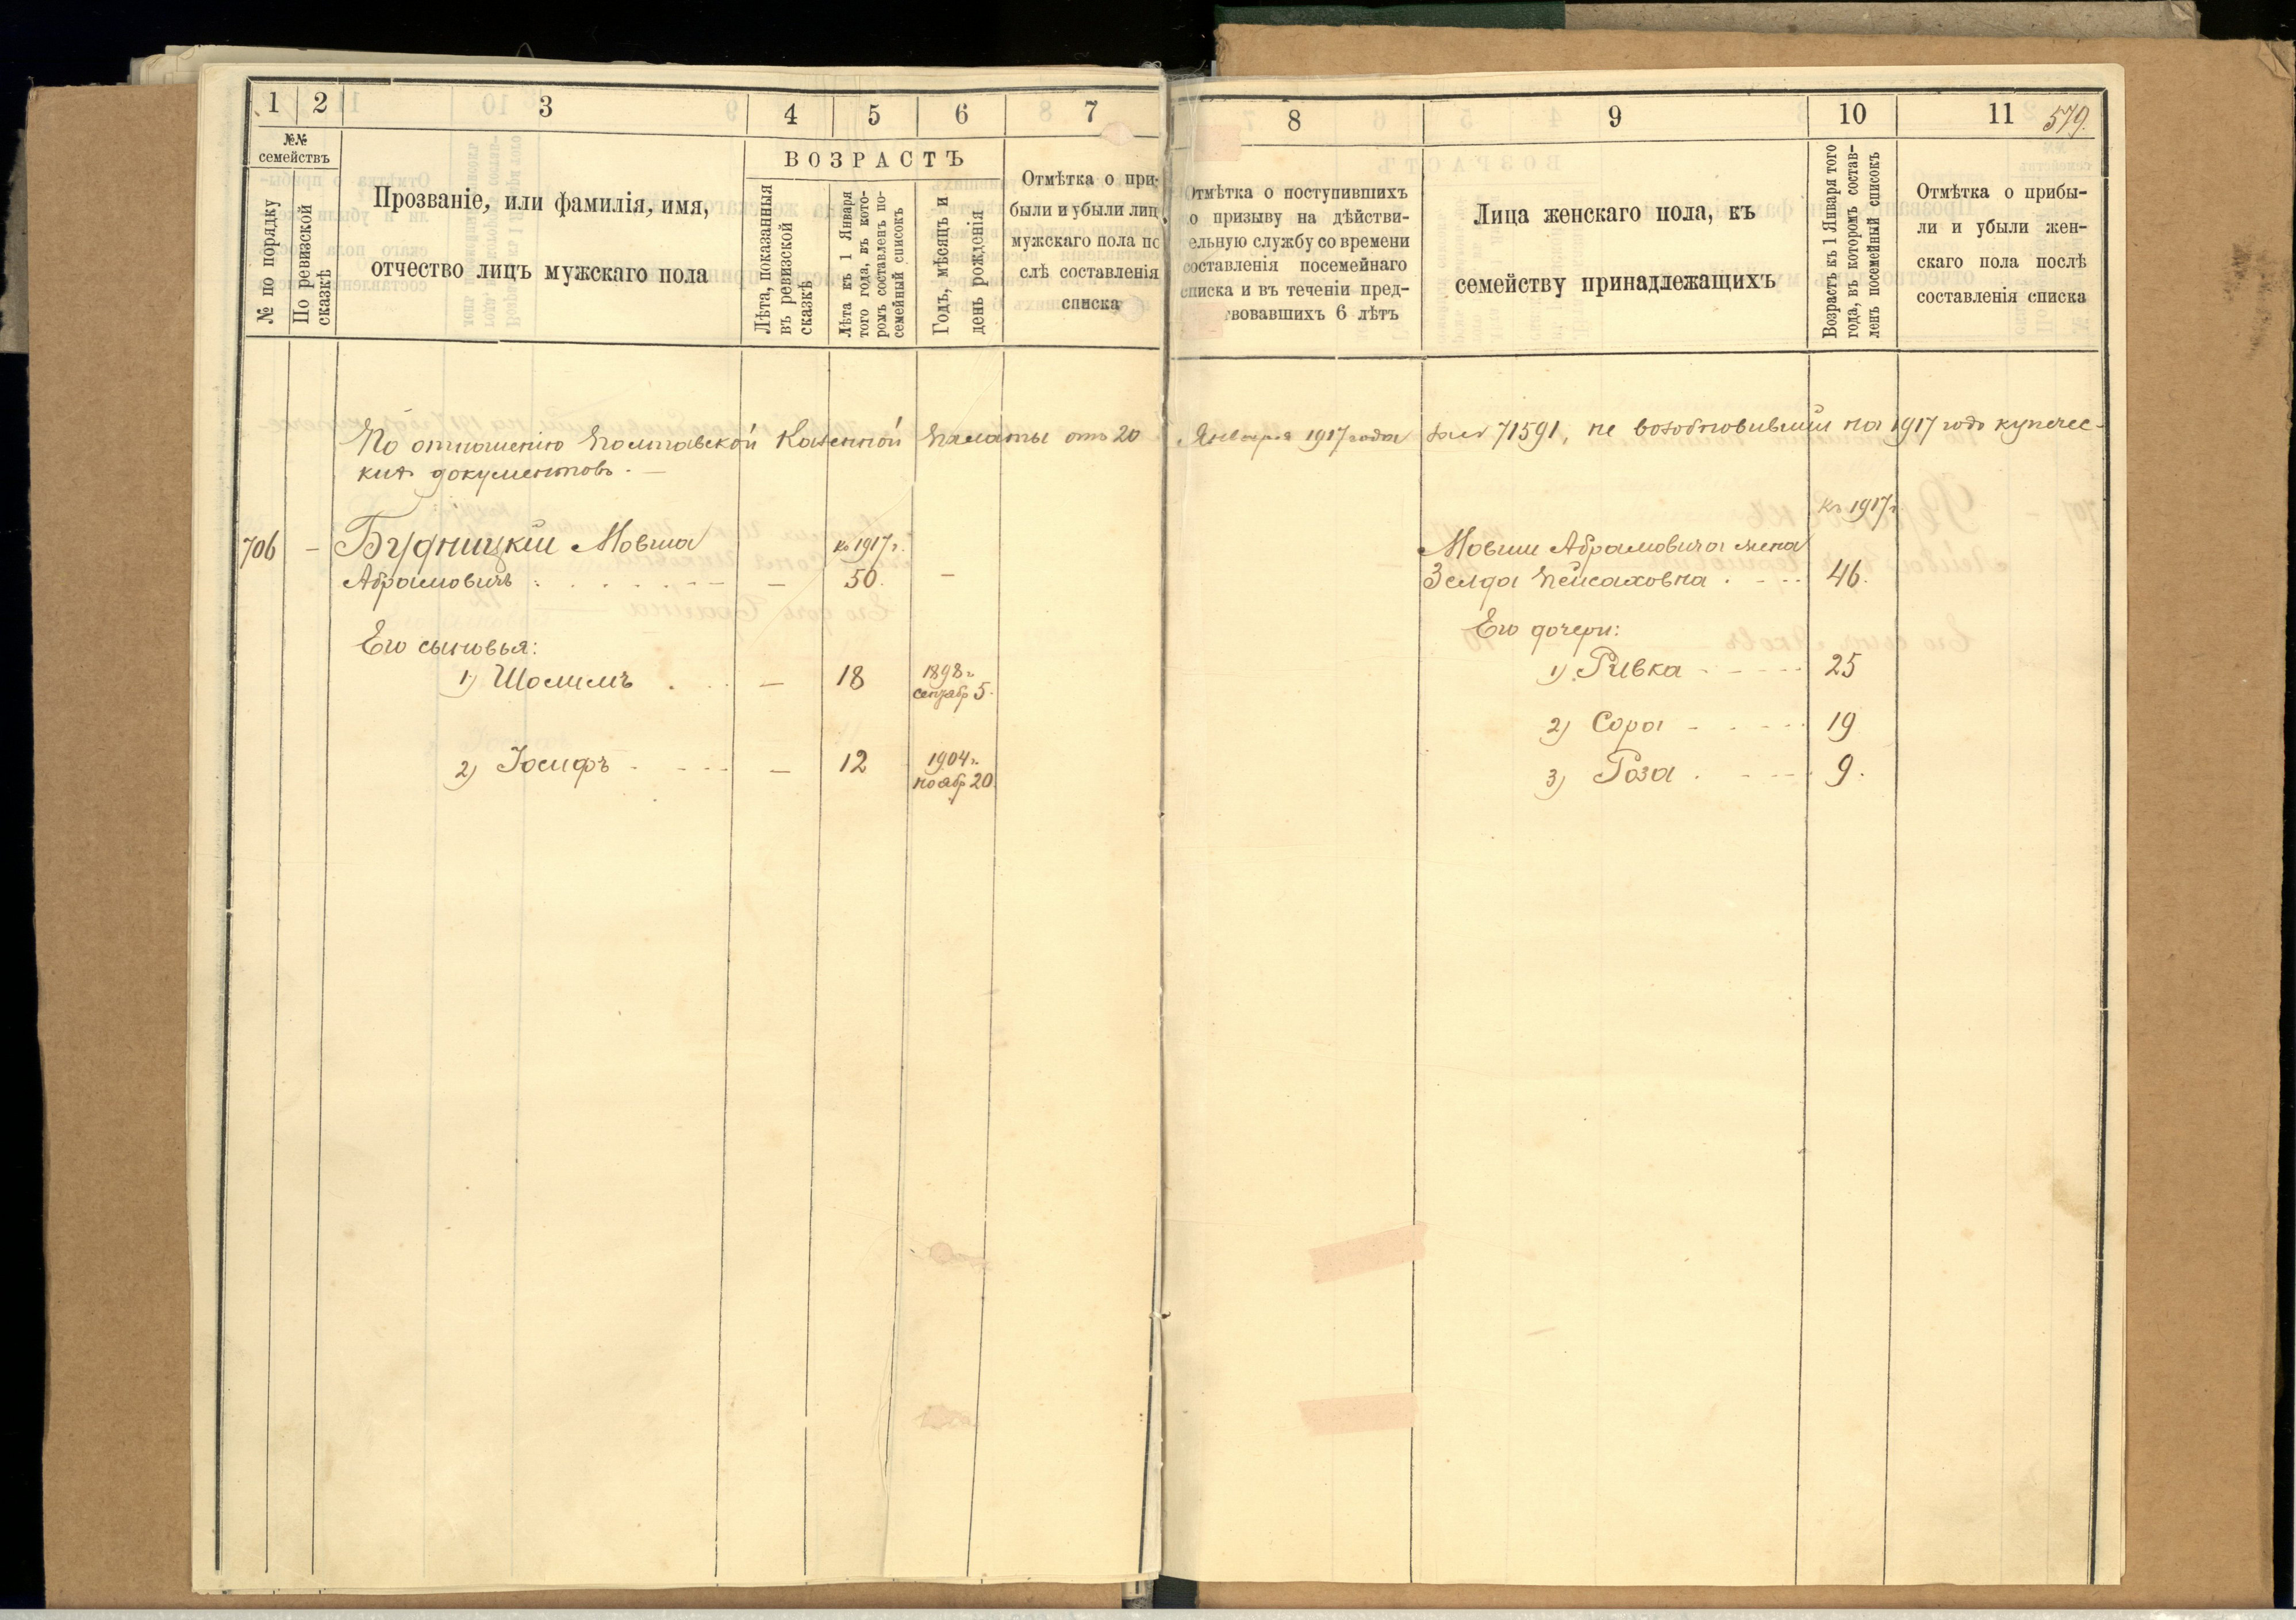 1 2 3 4 5 6 7
№№ семействъ
№ по порядку
По ревизской сказкѣ
Прозваніе, или фамилія, имя,
отчество лицъ мужскаго пола
ВОЗРАСТЪ
Лѣта, показанныя
въ ревизской
сказкѣ
Лѣта къ 1 Января
того года, въ кото-
ромъ составленъ по-
семейный списокъ
Годъ, мѣсяцъ и
день рожденія
Отмѣтка о при-
были и убыли лицъ
мужскаго пола по
слѣ составленія
списка
8 9 10 11
579.
Отмѣтка о поступившихъ
о призыву на дѣйстви-
ельную службу со времени
составленія посемейнаго
списка и въ теченіи пред-
твовавшихъ 6 лѣтъ
Лица женскаго пола, къ
семейству принадлежащихъ
Возрастъ къ 1 Января того
года, въ которомъ состав-
ленъ посемейный списокъ
Отмѣтка о прибы-
ли и убыли жен-
скаго пола послѣ
составленія списка
По отношенію Полтавской Казенной Палаты отъ 20 Января 1917 года за № 71591, не возобновившій на 1917 годъ купечес-
кихъ документовъ. —
706 — Будницкій Мовша къ 1917 г.
Абрамовичъ — 50. —
Его сыновья:
1) Шолимъ — 18 1898 г.
сентябр 5.
2) Іосифъ — 12 1904 г.
ноябр 20.
къ 1917 г
Мовши Абрамовича жена
Зелда Пейсаховна 46.
Его дочери:
1) Ривка 25
2) Сора 19
3) Роза 9.